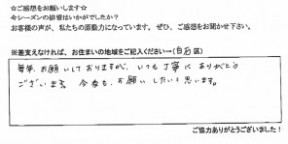 ☆ご感想をお願いします☆
今シーズンの排雪はいかがでしたか?
お客様の声が、私たちの原動力になっています。ぜひ、ご感想をお聞かせ下さい。
※差支えなければ、お住まいの地域をご記入ください→(白石区)
毎年、お願いしておりますが、いつも丁寧にありがとう
ございます。今春も、お願いしたいと思います。
ご協力ありがとうございました!